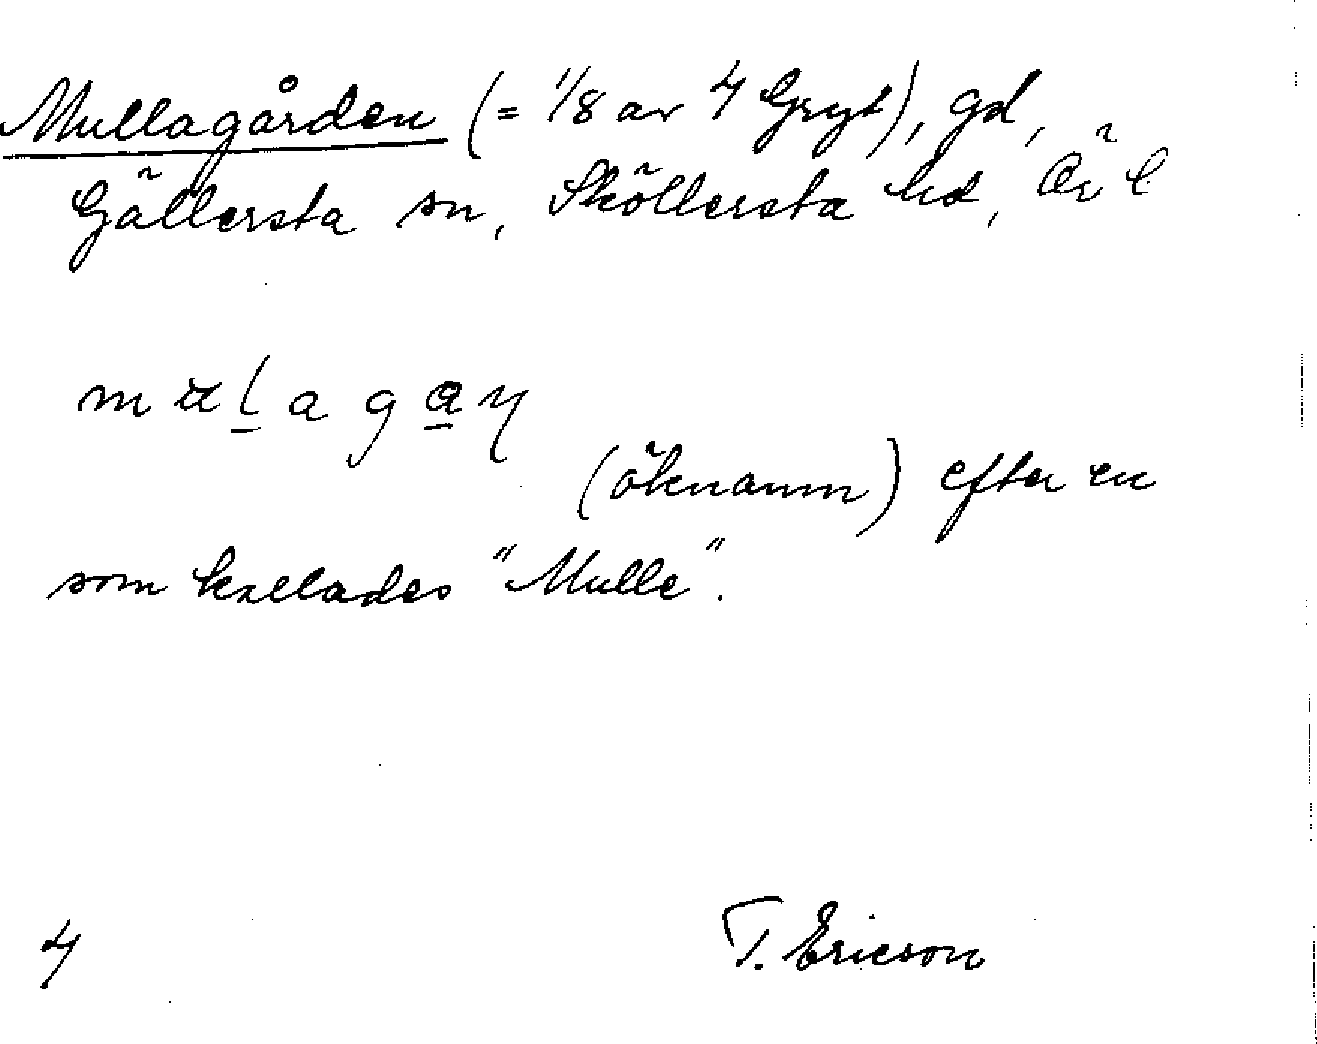 Mullagården (= 1/8 av 4 Gryt), gd,
Gällersta sn, Sköllersta hd, Ör l
(öknamn) efter en
som kallades "Mulle".
4 T. Ericson